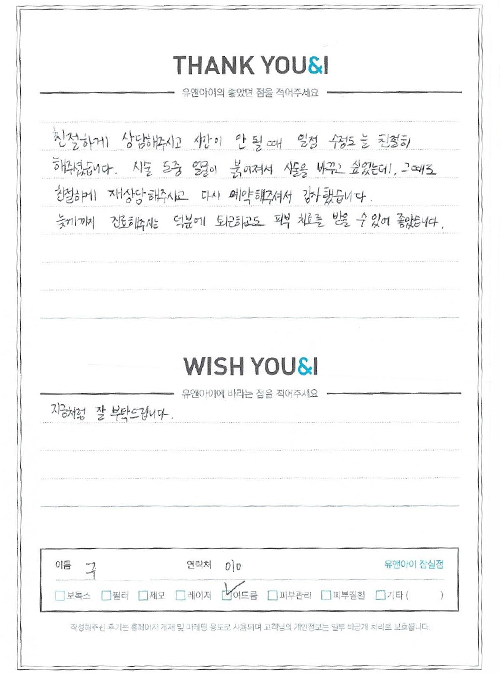 THANK YOU&I
유앤아이의 좋았던 점을 적어주세요
친절하게 상담해주시고 시간이 안 될 때 일정 수정도 늘 친절히
해주셨습니다. 시술 도중 얼굴이 붉어져서 시술을 바꾸고 싶었는데!, 그때도
친절하게 재상담해주시고 다시 예약해주셔서 감사했습니다.
늦게까지 진료해주시는 덕분에 퇴근하고도 피부 치료를 받을 수 있어 좋았습니다.
WISH YOU&I
유앤아이에 바라는 점을 적어주세요
지금처럼 잘 부탁드립니다.
이름 구 연락처 010 유앤아이 잠실점
보톡스 필러 제모 레이저 여드름 피부관리 피부질환 기타 ( )
작성해주신 후기는 홈페이지 게재 및 마케팅 용도로 사용되며 고객님의 개인정보는 일부 비공개 처리로 보호됩니다.